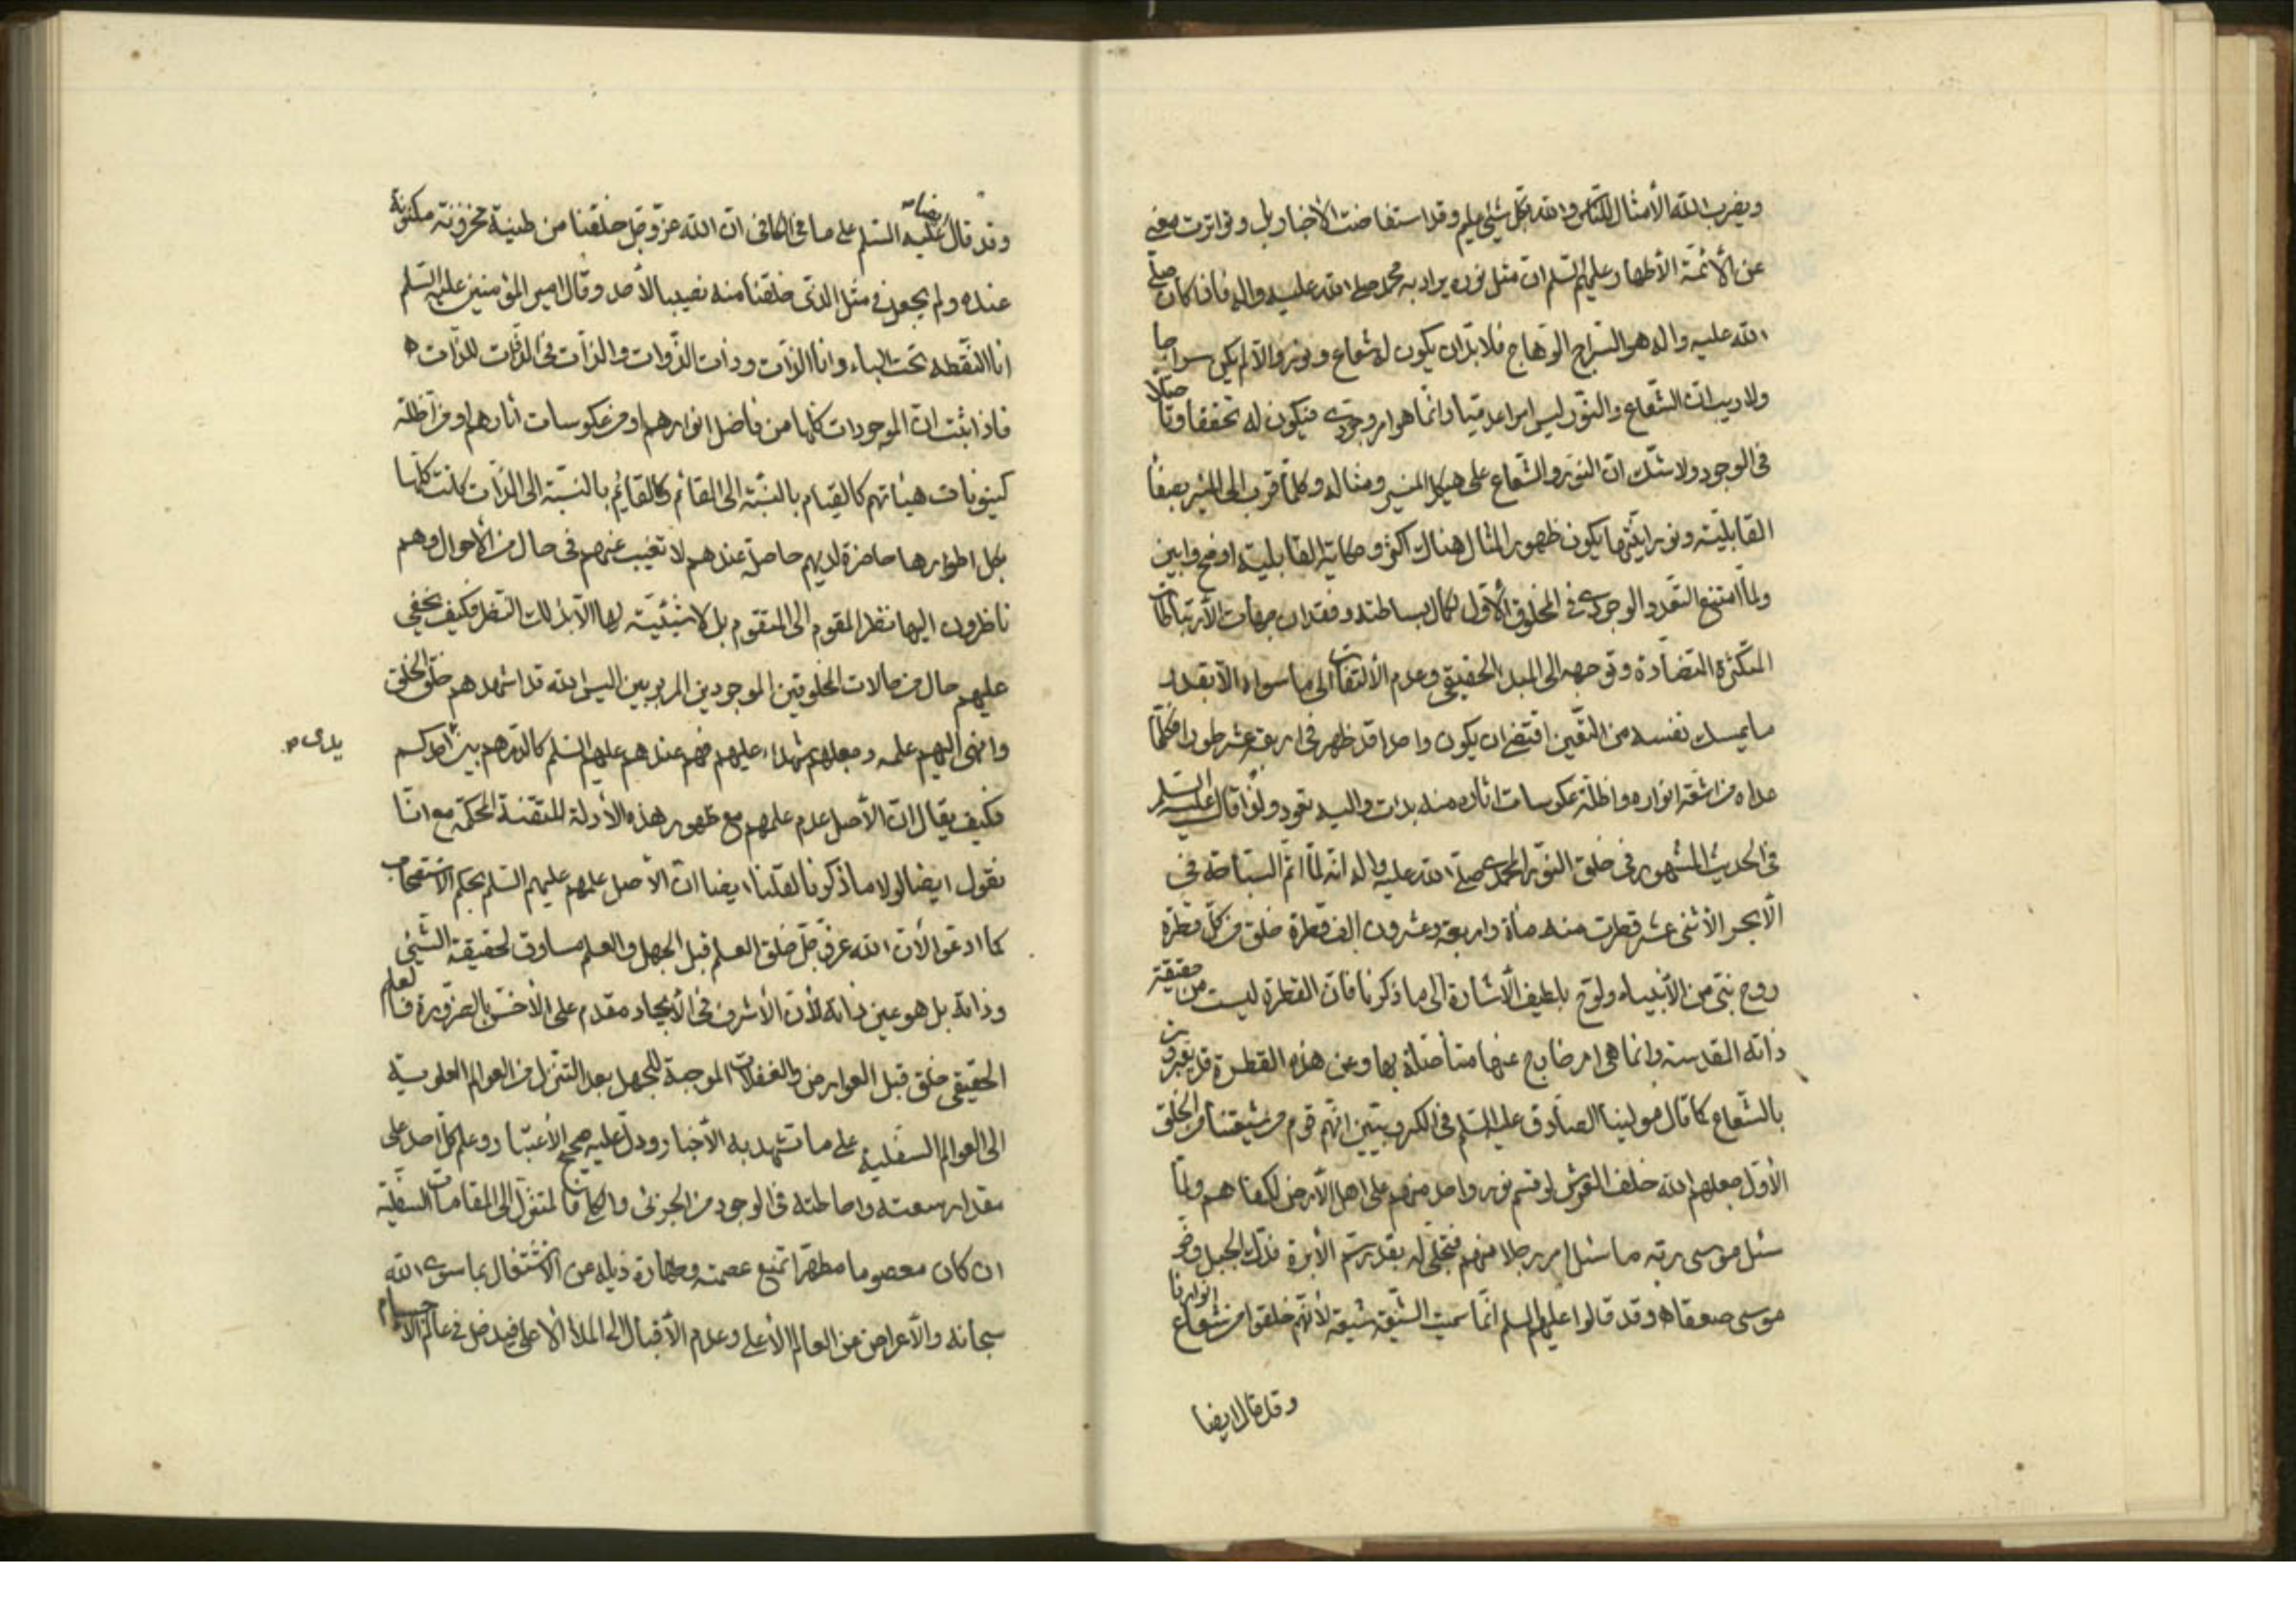 ويضرب الله الأمثال للناس والله بكل شيئ عليم وقد استفاضت الأخبار بل وتواترت معنى
عن الأئمة الأطهار عليهم السلم ان مثل نوره يراد به محمد صلى الله عليه واله فاذا كان صلى
الله عليه واله هو السراج الوهاج فلا بد ان يكون له شعاع ونور والا لم يكن سراجا
ولا ريب ان الشعاع والنور ليس امرا عدميا وانما هو امر وجودى فيكون له تحققا وتأصلا
فى الوجود ولا شك ان النور والشعاع على هيكل المنير ومثاله وكلما قرب الى المنير بصفاء
القابلية ونورانيتها يكون ظهور المثال هناك اكثر وحكاية القابلية اوضح وابين
ولما امتنع التعدد الوجودى فى المخلوق الأول لكمال بساطته وفقدان جهات الأرتباطات
المتكثرة المتضادة وتوجهه الى المبدا الحقيقى وعدم الألتفات الى ما سواه الا بقدر
ما يمسك نفسه من التعين اقتضى ان يكون واحدا قد ظهر فى اربعة عشر طورا فكلما
عداه من اشعة انواره واظلة عكوسات اثاره منه بدات واليه تعود ولذا قال عليه السلم
فى الحديث المشهور فى خلق النور المحمدى صلى الله عليه واله انه لما اتم السباحة فى
الأبحر الأثنى عشر قطرت منه مأة واربعة وعشرون الف قطرة خلق من كل قطرة
روح نبى من الأنبياء ولوح بلطيف الأشارة الى ما ذكرنا فان القطرة ليست من حقيقة
ذاته المقدسة وانما هى امر خارج عنها متأصلة بها وعن هذه القطرة قد يعبرون
بالشعاع كما قال مولينا الصادق عليه السلم فى الكروبيين انهم قوم من شيعتنا من الخلق
الأول جعلهم الله خلف العرش لو قسم نور واحد منهم على اهل الأرض لكفاهم ولما
سئل موسى ربه ما سئل امر رجلا منهم فتجلى له بقدر سم الأبرة فدك الجبل وخر
موسى صعقا وقد قالوا عليهم السلم انما سميت الشيعة شيعة لأنهم خلقوا من شعاع انوارنا
وقد قال ايضا
وقد قال ايضا عليه السلم على ما فى الكافى ان الله عز وجل خلقنا من طينة مخزونة مكنونة
عنده ولم يجعل فى مثل الذى خلقنا منه نصيبا لأحد وقال امير المؤمنين عليه السلم
انا النقطة تحت الباء وانا الذات وذات الذوات والذات فى الذوات للذات
فاذا ثبت ان الموجودات كلها من فاضل انوارهم او من عكوسات اثارهم او من اظلة
كينونات هيئاتهم كالقيام بالنسبة الى القائم والقائم بالنسبة الى الذات كانت كلها
بكل اطوارها حاضرة لديهم حاصلة عندهم لا تغيب عنهم فى حال من الأحوال وهم
ناظرون اليها نظر المقوم الى المتقوم بل لا شيئية لها الا بذلك النظر فكيف يخفى
عليهم حال من حالات المخلوقين الموجودين المربوبين اليس الله قد اشهدهم خلق الخلق
وانهى اليهم علمه وجعلهم شهداء عليهم فهم عندهم عليهم السلم كالدرهم بين احدكم
يدى ص
فكيف يقال ان الأصل عدم علمهم مع ظهور هذه الأدلة المتقنة المحكمة مع انا
نقول ايضا لولا ما ذكرنا لقلنا ايضا ان الأصل علمهم عليهم السلم بحكم الأستصحاب
كما ادعوا لأن الله عز وجل خلق العلم قبل الجهل والعلم مساوق لحقيقة الشيئ
وذاته بل هو عين ذاته لأن الأشرف فى الأيجاد مقدم على الأخس بالضرورة فالعلم
الحقيقى خلق قبل العوارض والغفلات الموجبة للجهل بعد التنزل من العوالم العلوية
الى العوالم السفلية على ما تشهد به الأخبار ودل عليه صحيح الأعتبار وعلم كل احد على
مقدار سعته واحاطته فى الوجود من الجزئى والكلى فالمتنزل الى المقامات السفلية
ان كان معصوما مطهرا تمنع عصمته وطهارة ذيله من الأشتغال بما سوى الله
سبحانه والأعراض عن العالم الأعلى وعدم الأقبال الى الملاء الأعلى فيدخل فى عالم الأجسام